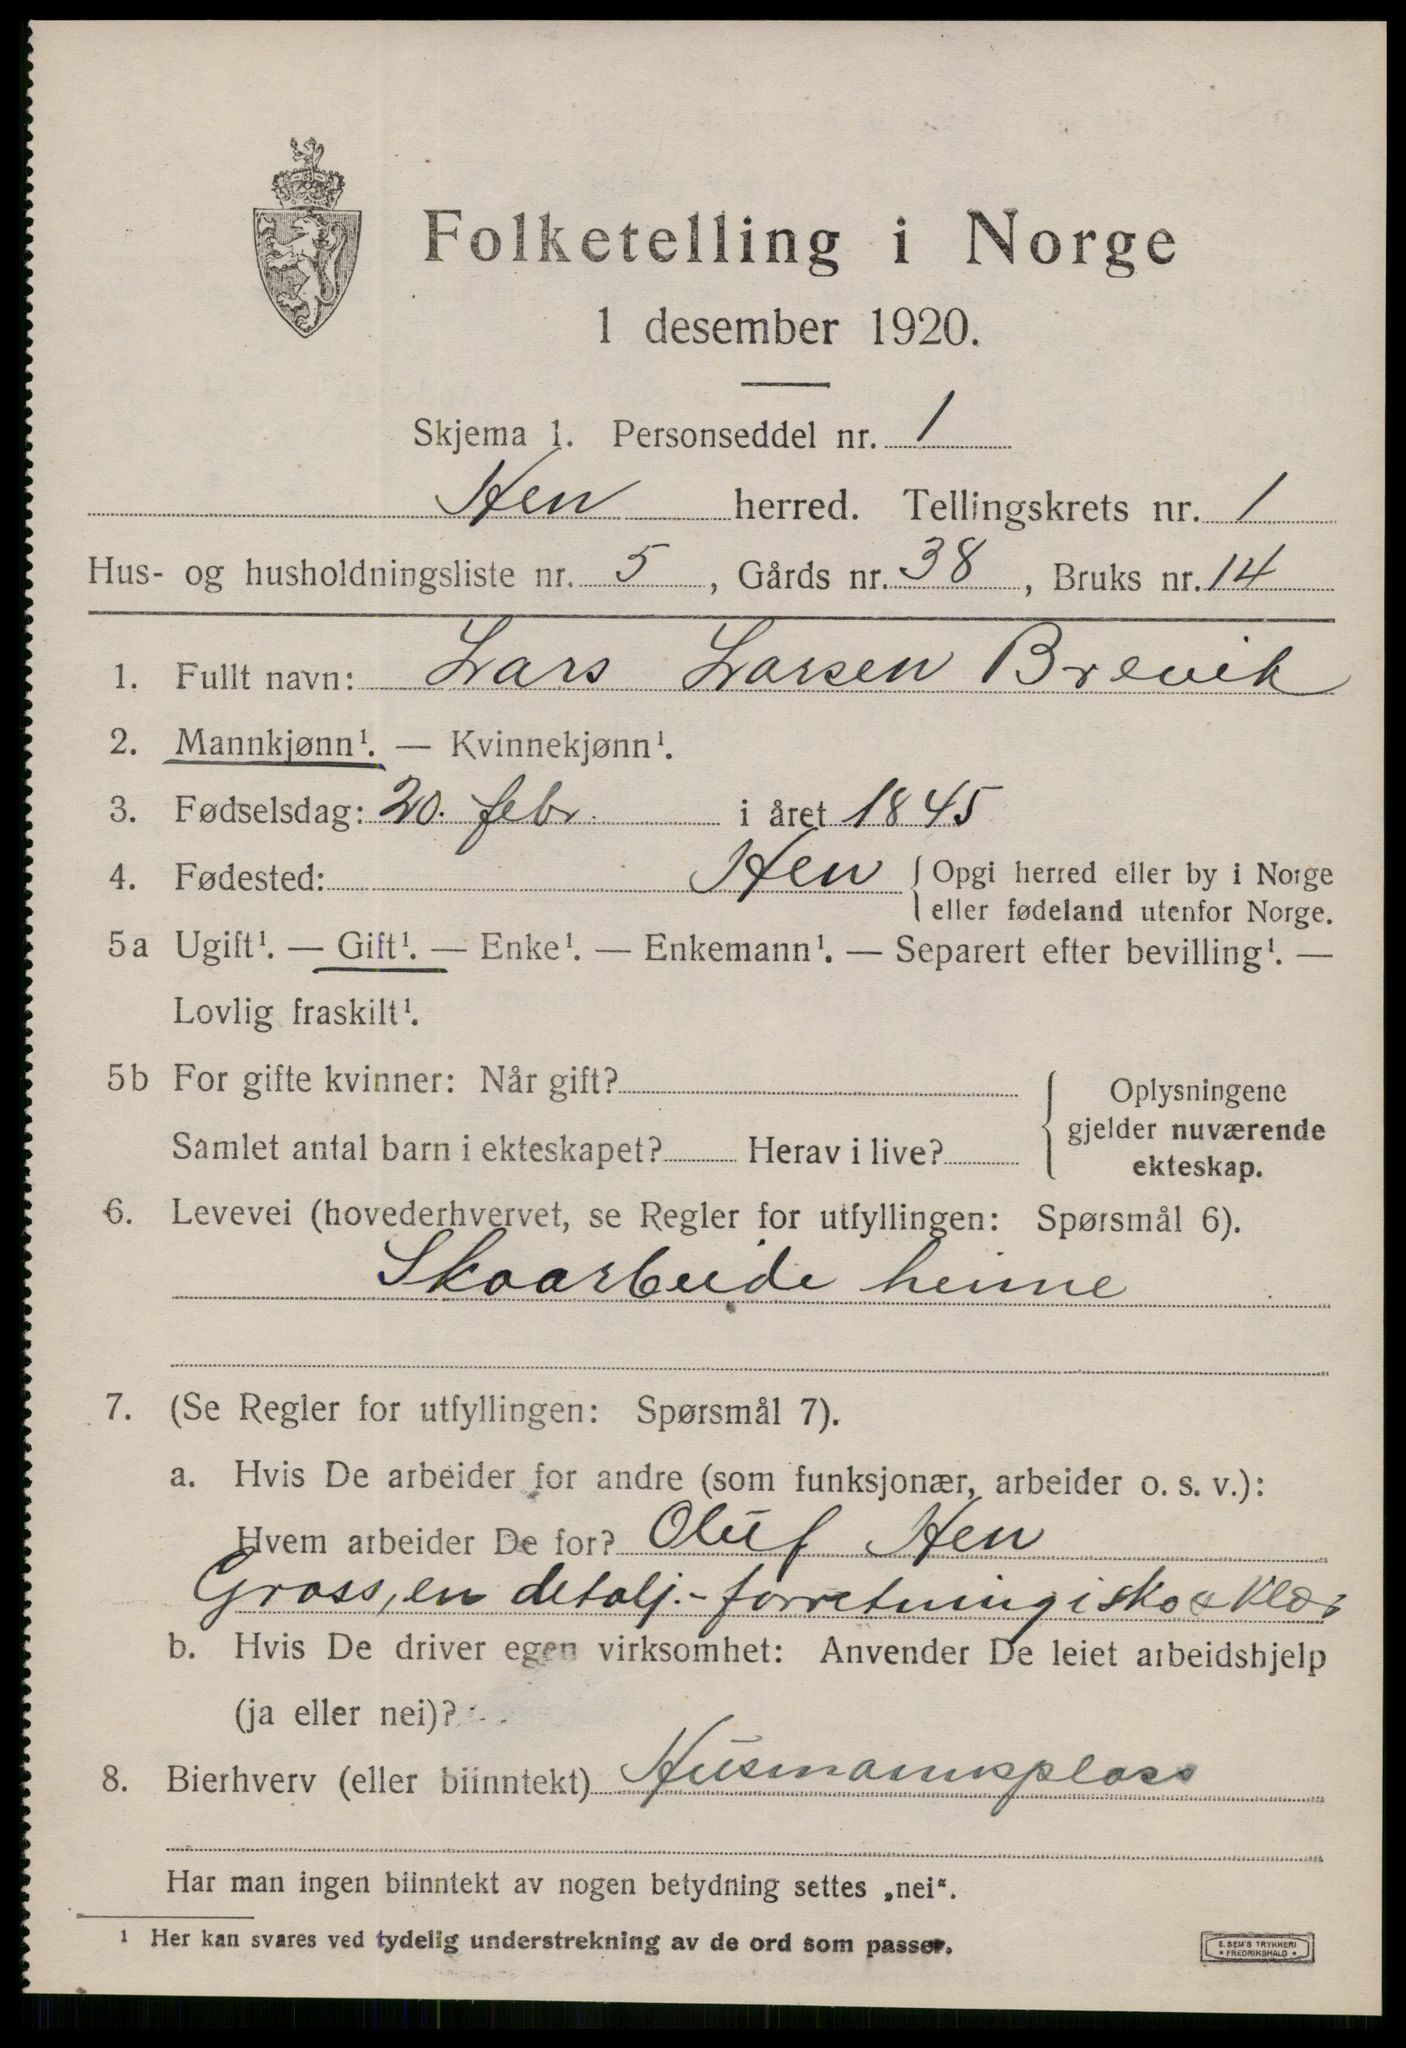 Folketelling i Norge
1 desember 1920.
Skjema 1. Personseddel nr. 1
Hen herred. Tellingskrets nr. 1
Hus- og husholdningsliste nr. 5, Gårds nr. 38, Bruks nr. 14
1. Fullt navn: Lars Larsen Brevik
2. Mannkjønn¹. — Kvinnekjønn¹.
3. Fødselsdag: 20. febr. i året 1845
4. Fødested: Hen { Opgi herred eller by i Norge
eller fødeland utenfor Norge.
5a Ugift¹. — Gift¹. — Enke¹. — Enkemann¹. — Separert efter bevilling¹. —
Lovlig fraskilt¹.
5b For gifte kvinner: Når gift? { Oplysningene
gjelder nuværende
Samlet antal barn i ekteskapet? Herav i live? ekteskap.
6. Levevei (hovederhvervet, se Regler for utfyllingen: Spørsmål 6).
Skoarbeide heime
7. (Se Regler for utfyllingen: Spørsmål 7).
a. Hvis De arbeider for andre (som funksjonær, arbeider o. s. v.):
Hvem arbeider De for? Oluf Hen
Gross, en detalj.-forretning i sko & klær
b. Hvis De driver egen virksomhet: Anvender De leiet arbeidshjelp
(ja eller nei)?
8. Bierhverv (eller biinntekt) Husmannsplass
Har man ingen biinntekt av nogen betydning settes „nei“.
¹ Her kan svares ved tydelig understrekning av de ord som passer.
E. SEM'S TRYKKERI
• FREDRIKSHALD •